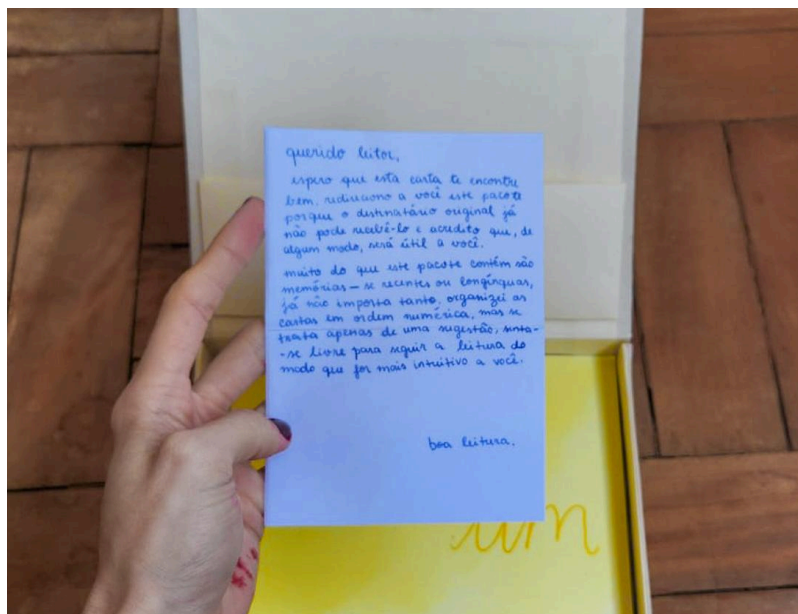 querido leitor,
espero que esta carta te encontre
bem. redireciono a você este pacote
porque o destinatário original já
não pode recebê-lo e acredito que, de
algum modo, será útil a você.
muito do que este pacote contém são
memórias — se recentes ou longínquas,
já não importa tanto. organizei as
cartas em ordem numérica, mas se
trata apenas de uma sugestão, sinta-
-se livre para seguir a leitura do
modo que for mais intuitivo a você.
boa leitura.
um